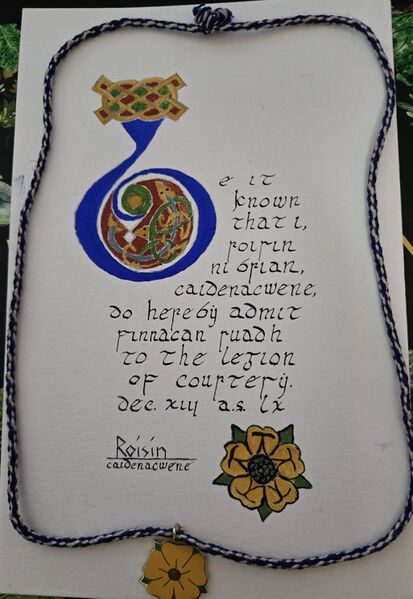 Be it
known
that i,
roisin
ni brian,
caidenacwene,
do hereby admit
finnacan ruadh
to the legion
of courtesy.
dec. xiij a.s. lx
Roisin
caidenacwene